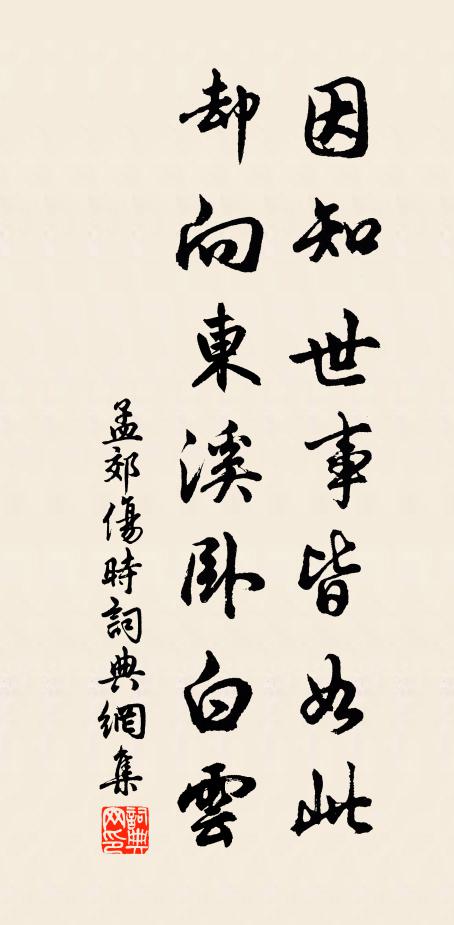 因知世事皆如此
却向東溪卧白雲
孟郊傷時詞典網集
詞典網印